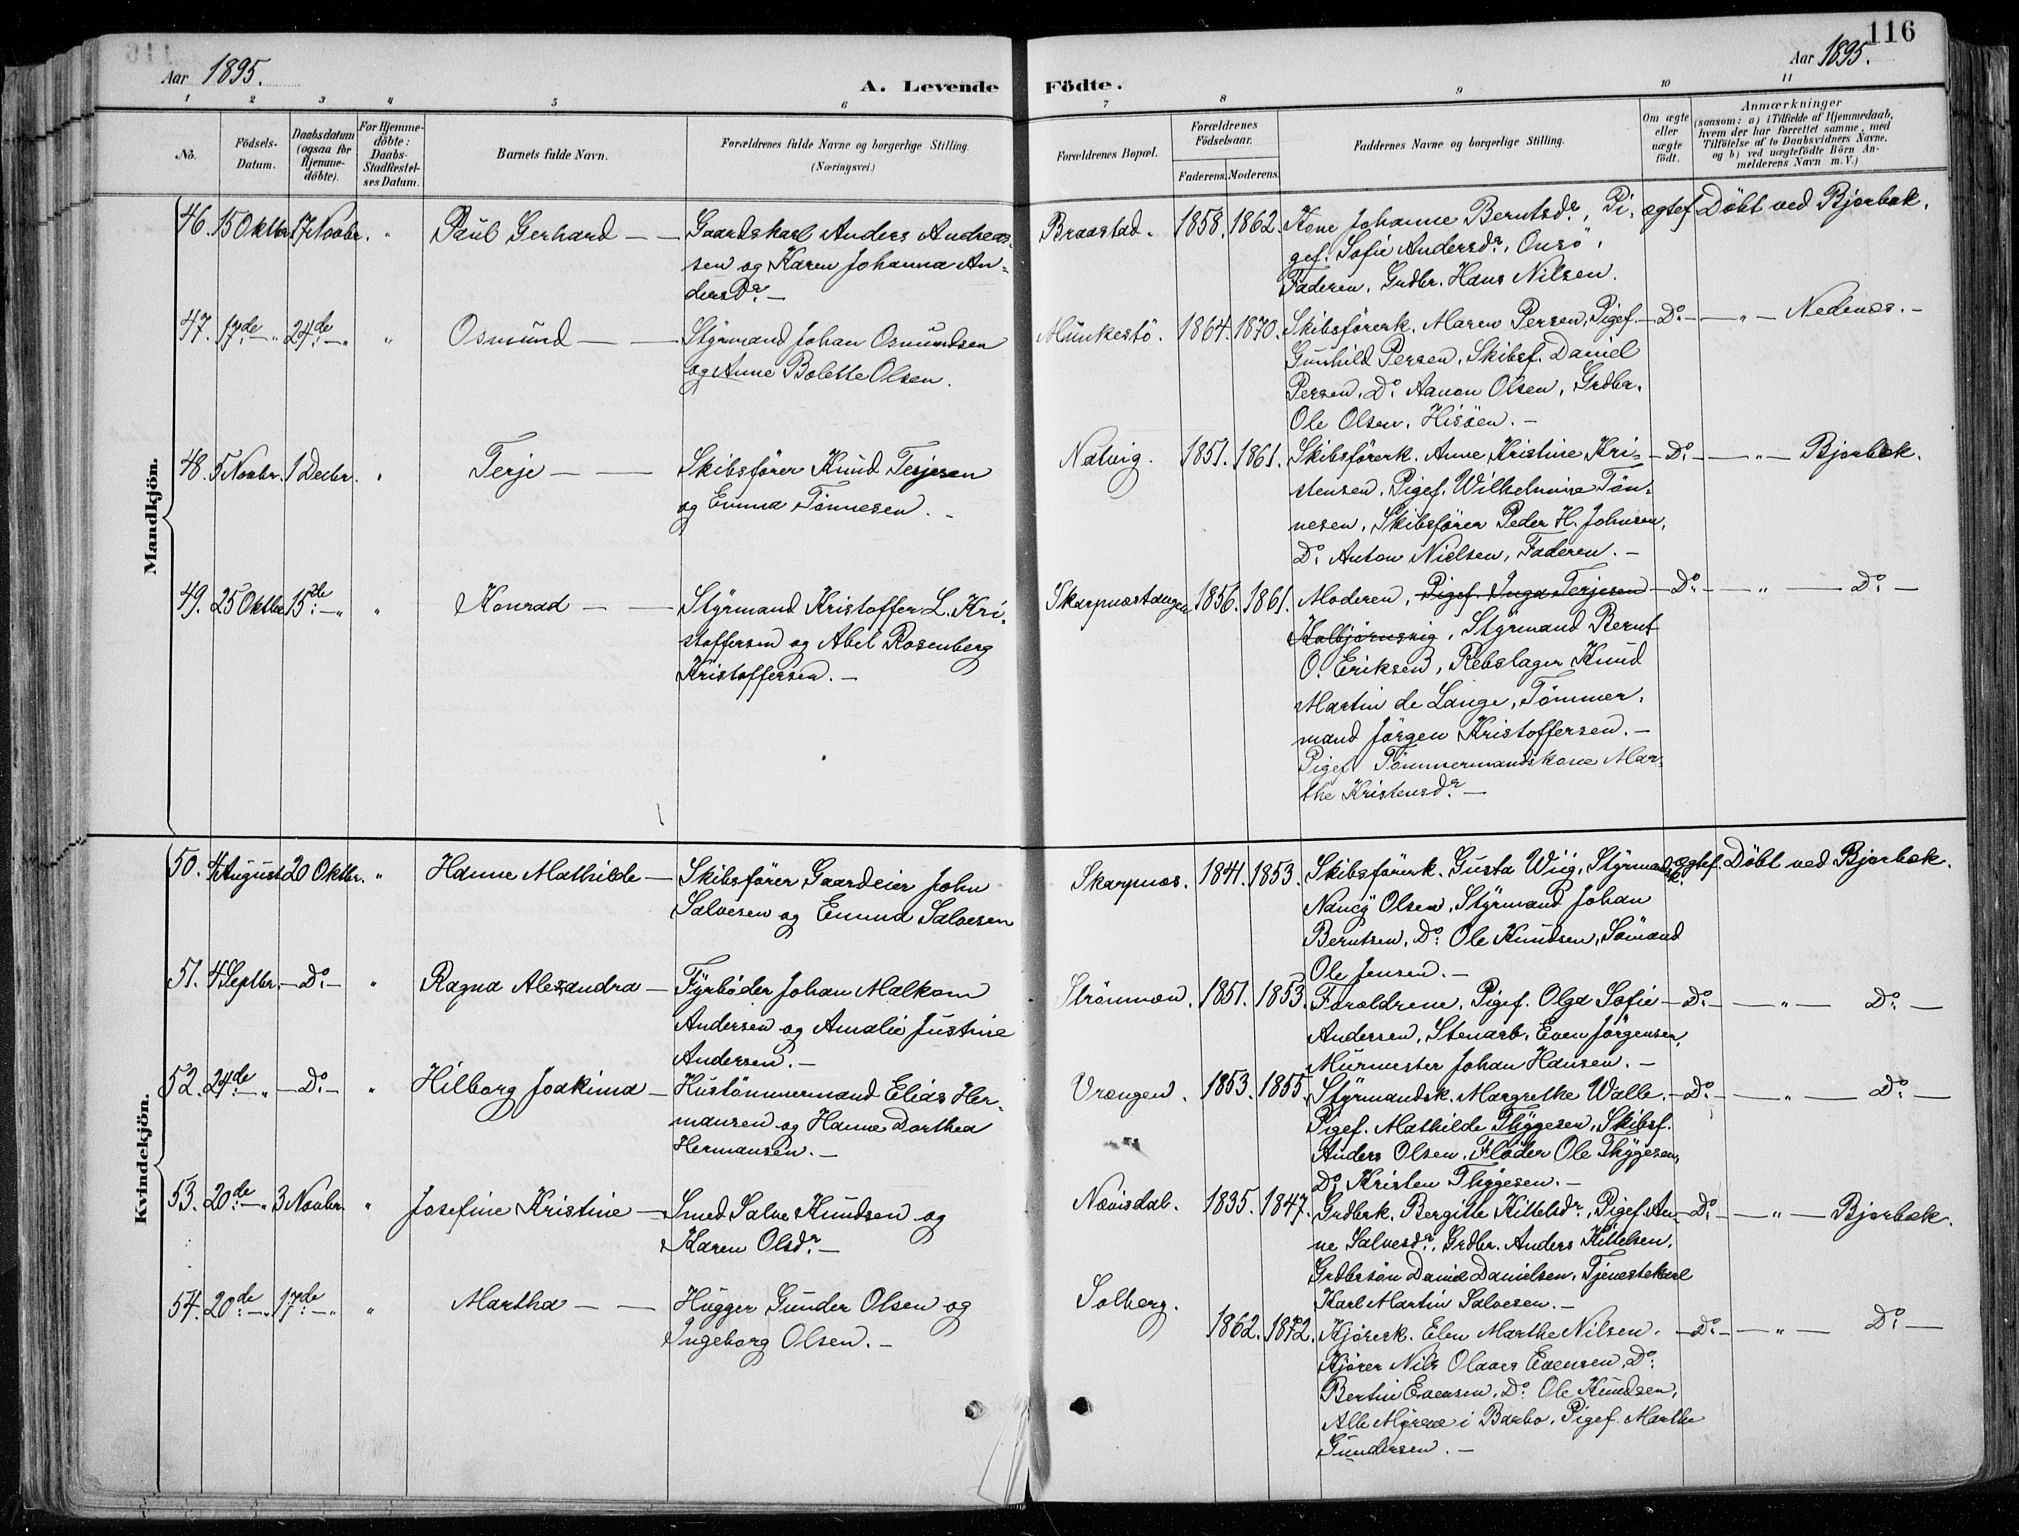 116
Aar 1895.
A. Levende Födte.
Aar 1895.
1 2 3 4 5 6 7 8 9 10 11
No.
Födsels-Datum.
Daabsdatum (ogsaa for Hjemmedöbte).
For Hjemmedöbte: Daabs-Stadfæstelses Datum.
Barnets fulde Navn.
Forældrenes fulde Navne og borgerlige Stilling. (Næringsvei.)
Forældrenes Bopæl.
Forældrenes Födselsaar.
Faderens. Moderens.
Faddernes Navne og borgerlige Stilling.
Om ægte eller uægte födt.
Anmærkninger
(saasom: a) i Tilfælde af Hjemmedaab, hvem der har forrettet samme, med Tilföielse af to Daabsvidners Navne, og b) ved uægtefödte Börn Anmelderens Navn m. V.)
Mandkjön.
46. 15 Oktbr. 17 Novbr. " Paul Gerhard — — Gaardskarl Anders Andreas-
sen og Karen Johanna An-
dersdr. —
Braastad. 1858. 1862. Kone Johanne Berntsdr, Pi, ægtef. Döbt ved Bjorbæk.
gef. Sofie Andersdr, Onsö,
Faderen, Grdbr. Hans Nilsen.
47. 17de — " 24de — " " Osmund — — Styrmand Johan Osmundsen
og Anne Bolette Olsen.
Munkestö. 1864. 1870. Skibsförerk. Maren Persen, Pigef. — Do — — " — Nedenæs. —
Gunhild Persen, Skibsf. Daniel
Persen, Do Aanon Olsen, Grdbr.
Ole Olsen, Hisöen. —
48. 5 Novbr. 1 Decbr. " Terje — — Skibsförer Knud Terjesen
og Emma Tönnesen. —
Natvig. 1851. 1861. Skibsförerk. Anne Kristine Kri- — Do — — " — Bjorbæk.
stensen, Pigef. Wilhelmine Tön-
nesen, Skibsförer Peder H. Johnsen,
Do Anton Nielsen, Faderen. —
49. 25 Oktbr. 15de — " " Konrad — — Styrmand Kristoffer L. Kri-
stoffersen og Abel Rosenberg
Kristoffersen. —
Skarpnæstangen 1856. 1861. Moderen, Pigef. Inga Terjesen — Do — — " — Do —
Kolbjörnsvig, Styrmand Bernt
O. Eriksen, Rebslager Knud
Martin de Lange, Tömmer-
mand Jörgen Kristoffersen. —
Pigef Tömmermandskone Mar-
the Kristensdr. —
Kvindekjön.
50. 4 August 20 Oktbr. " Hanne Mathilde — Skibsförer Gaardeier John
Salvesen og Emma Salvesen
Skarpnæs. 1841. 1853. Skibsförerk. Gusta Wiig, Styrmandsk. ægtef. Döbt ved Bjorbæk.
Nancy Olsen, Styrmand Johan
Berntsen, Do Ole Knudsen, Sömand
Ole Jensen. —
51. 4 Septbr. — Do — " Ragna Alexandra — Fyrböder Johan Malkom
Andersen og Amalie Justine
Andersen. —
Strömmen. 1851. 1853. Forældrene, Pigef. Olga Sofie — Do — — " — Do —
Andersen, Stenarb. Even Jörgensen,
Murmester Johan Hansen. —
52. 24de — " — Do — " Hilborg Joakima — Hustömmermand Elias Her-
mansen og Hanne Dorthea
Hermansen. —
Vrængen. 1853. 1855. Styrmandsk. Margrethe Walle. — Do — — " — Do —
Pigef. Mathilde Thygesen, Skibsf.
Anders Olsen, Flöder Ole Thygesen,
Do Kristen Thygesen. —
53. 20de — " 3 Novbr. " Josefine Kristine — Smed Salve Knudsen og
Karen Olsdr. —
Nævisdal. 1835. 1847. Grdbrk. Bergitte Kittelsdr, Pigef. An- — Do — — " — Bjorbæk.
ne Salvesdr, Grdbr. Anders Kittelsen,
Grdbrsön Daniel Danielsen, Tjenestekarl
Karl Martin Salvesen. —
54. 20de — " 17de — " " Martha — — Hugger Gunder Olsen og
Ingeborg Olsen. —
Solberg. 1862. 1872. Kjörerk. Elen Marthe Nilsen. — Do — — " — Do —
Kjörer Nils Olaves Evensen, Do
Bertin Evensen, Do Ole Knudsen,
Alle Myrene i Barbo, Pigef. Marthe
Gundersen. —